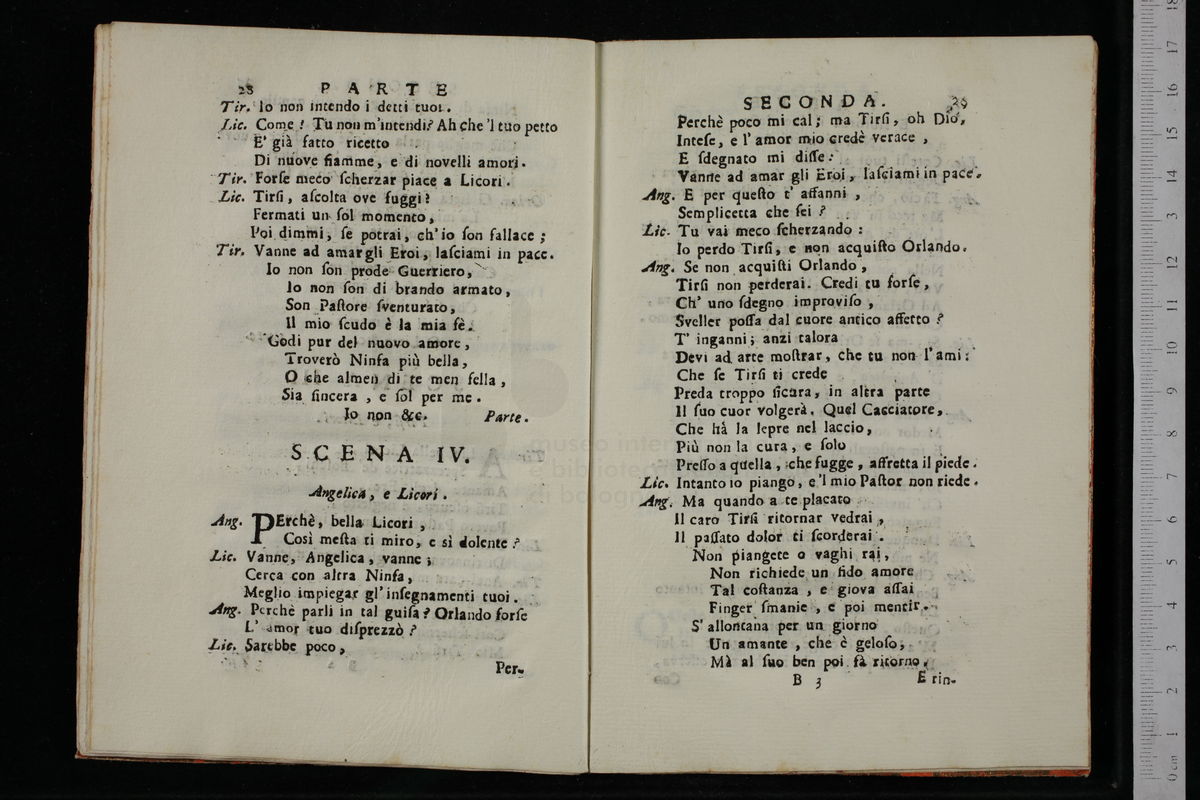 28 PARTE
Tir. Io non intendo i detti tuoi.
Lic. Come! Tu non m'intendi? Ah che 'l tuo petto
E' già fatto ricetto
Di nuove fiamme, e di novelli amori.
Tir. Forſe meco ſcherzar piace a Licori.
Lic. Tirſi, aſcolta ove fuggi?
Fermati un ſol momento,
Poi dimmi, ſe potrai, ch'io ſon fallace;
Tir. Vanne ad amar gli Eroi, laſciami in pace.
Io non ſon prode Guerriero,
Io non ſon di brando armato,
Son Paſtore ſventurato,
Il mio ſcudo è la mia fè.
Godi pur del nuovo amore,
Troverò Ninfa più bella,
O che almen di te men fella,
Sia ſincera, e ſol per me.
Io non &c. Parte.
SCENA IV.
Angelica, e Licori.
Ang. PErchè, bella Licori,
Così meſta ti miro, e sì dolente?
Lic. Vanne, Angelica, vanne;
Cerca con altra Ninfa,
Meglio impiegar gl' inſegnamenti tuoi.
Ang. Perchè parli in tal guiſa? Orlando forſe
L' amor tuo diſprezzò?
Lic. Sarebbe poco,
Per-
SECONDA. 29
Perchè poco mi cal; ma Tirſi, oh Dio,
Inteſe, e l' amor mio credè verace,
E ſdegnato mi diſſe:
Vanne ad amar gli Eroi, laſciami in pace.
Ang. E per queſto t' affanni,
Semplicetta che ſei?
Lic. Tu vai meco ſcherzando:
Io perdo Tirſi, e non acquiſto Orlando.
Ang. Se non acquiſti Orlando,
Tirſi non perderai. Credi tu forſe,
Ch' uno ſdegno improviſo,
Sveller poſſa dal cuore antico affetto?
T' inganni; anzi talora
Devi ad arte moſtrar, che tu non l' ami:
Che ſe Tirſi ti crede
Preda troppo ſicura, in altra parte
Il ſuo cuor volgerà. Quel Cacciatore,
Che hà la lepre nel laccio,
Più non la cura, e ſolo
Preſſo a quella, che fugge, affretta il piede.
Lic. Intanto io piango, e 'l mio Paſtor non riede.
Ang. Ma quando a te placato
Il caro Tirſi ritornar vedrai,
Il paſſato dolor ti ſcorderai.
Non piangete o vaghi rai,
Non richiede un fido amore
Tal coſtanza, e giova aſſai
Finger ſmanie, e poi mentir.
S' allontana per un giorno
Un amante, che è geloſo,
Mà al ſuo ben poi fà ritorno,
B 3 E rin-